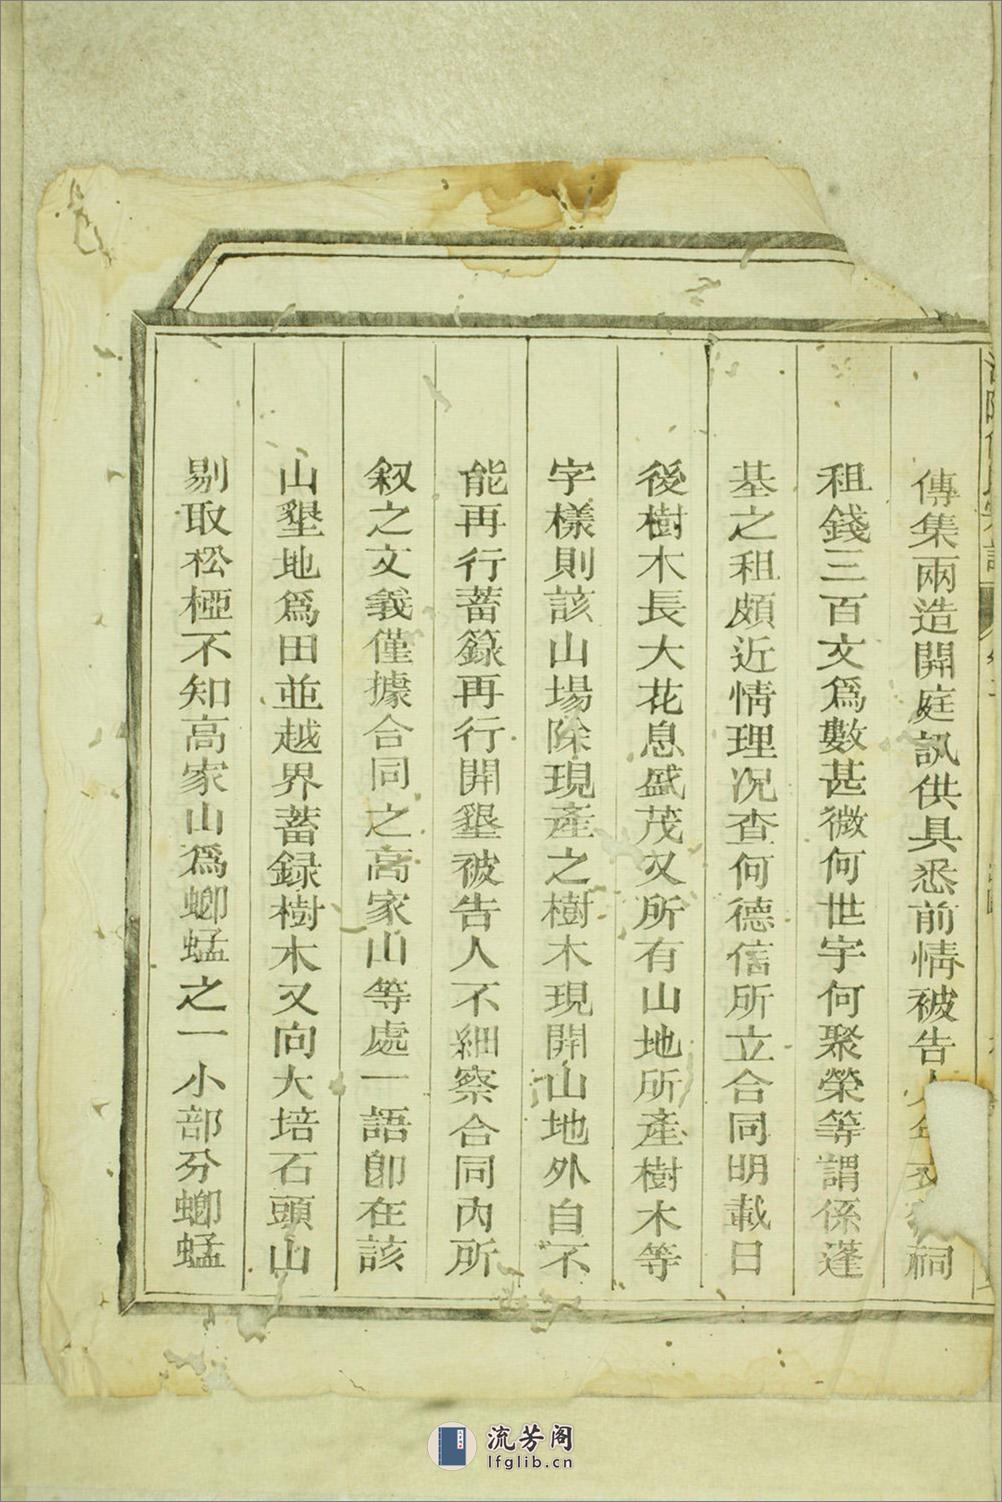 傳集兩造開庭訊供具悉前情被告人
祠
租錢三百文爲數甚微何世宇何聚榮等謂係蓬
基之租頗近情理况查何德信所立合同明載日
後樹木長大花息盛茂又所有山地所產樹木等
字樣則該山場除現產之樹木現開山地外自不
能再行蓄籙再行開墾被告人不細察合同內所
叙之文義僅據合同之高家山等處一語卽在該
山墾地爲田並越界蓄録樹木又向大培石頭山
剔取松椏不知高家山爲螂蜢之一小部分螂蜢
流芳阁
lfglib.cn